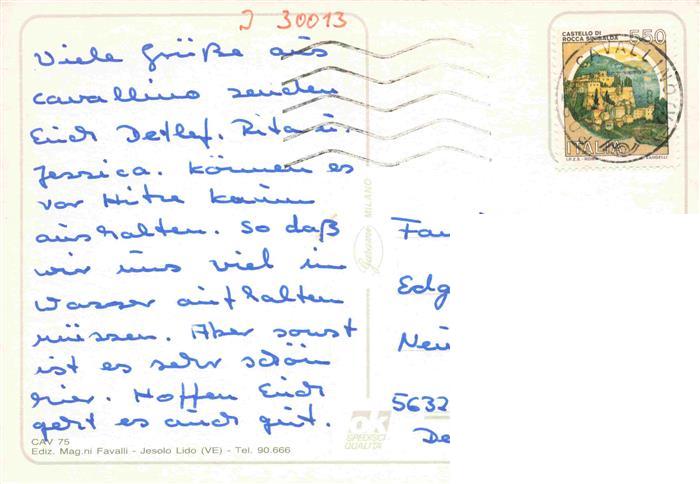 J 30013
Viele Grüße aus
Cavallino senden
Euch Detlef, Rita u.
Jessica. Können es
vor Hitze kaum
aushalten. So daß
wir uns viel im
Wasser aufhalten
müssen. Aber sonst
ist es sehr schön
hier. Hoffen Euch
geht es auch gut.
CAV 75
Ediz. Mag.ni Favalli - Jesolo Lido (VE) - Tel. 90.666
MILANO
OK
SPEDISCI
QUALITÀ
CASTELLO DI
ROCCA SINIBALDA
550
ITALIA
CAVALLINO
Fa
Edg
Neu
5632
De